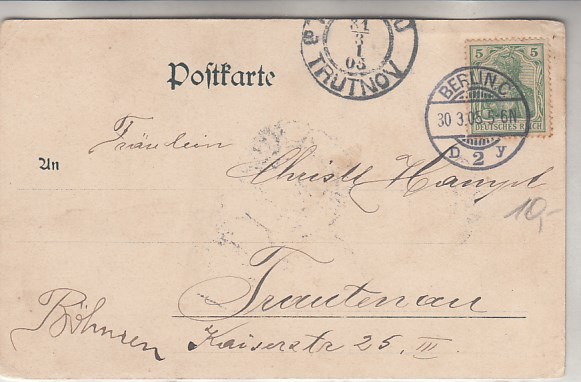 31
3
1
05
8 TRUTNOV
5 5
DEUTSCHES REICH
BERLIN.C.
30 3.05.5-6N
D 2 y
Postkarte
Fräulein
An
Christl Hampl
10,-
Trautenau
Böhmen
Kaiserstr 25. III.